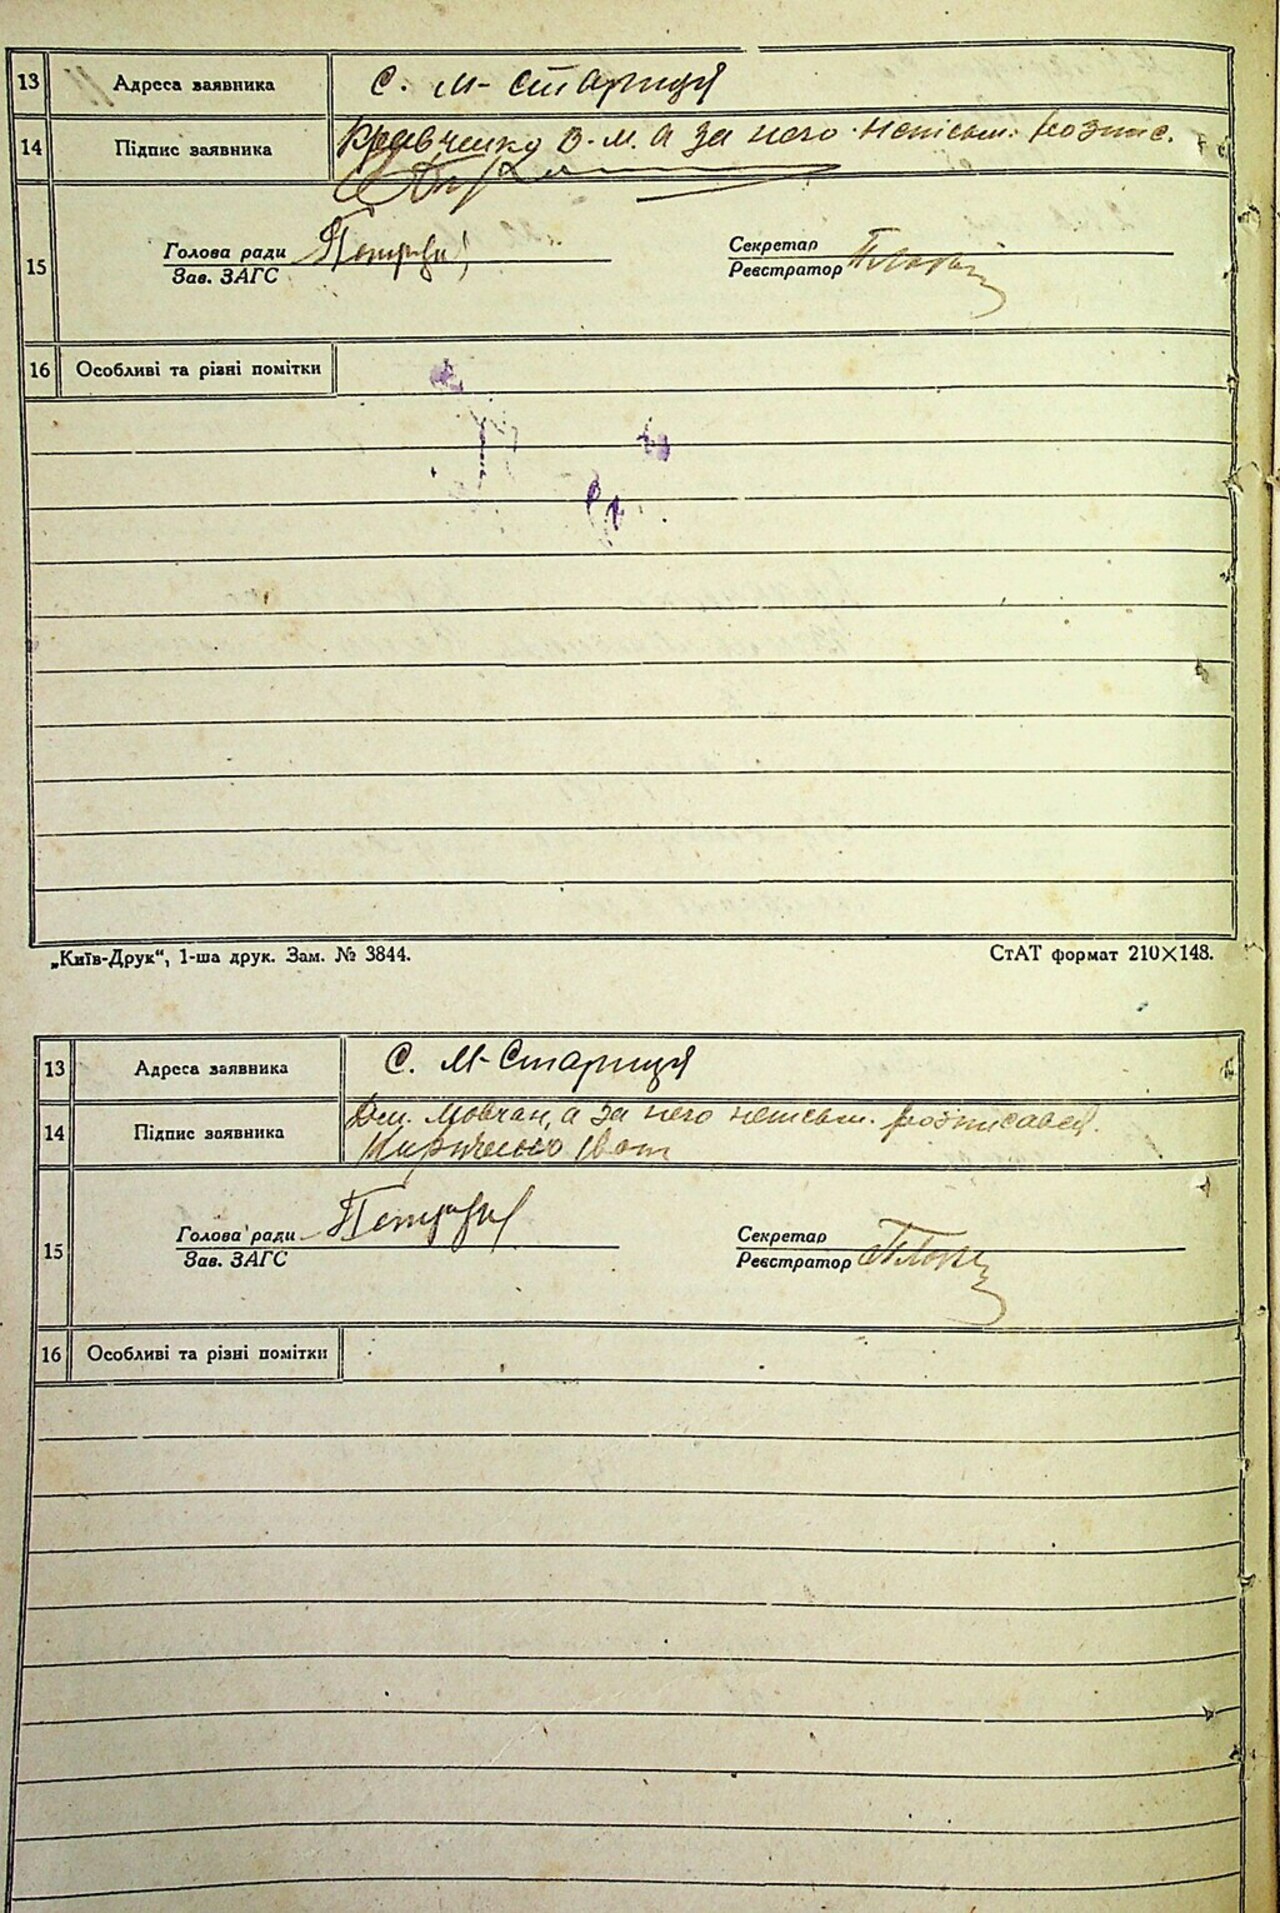 13 Адреса заявника с. М-Стариця
14 Підпис заявника Кравченко В. М. а за него неписьм. розпис.
Голова ради
15
Зав. ЗАГС
Секретар
Реєстратор
16 Особливі та різні помітки
„Київ-Друк“, 1-ша друк. Зам. № 3844. СтАТ формат 210×148.
13 Адреса заявника с. М-Стариця
14 Підпис заявника Дм. Мовчан, а за него неписьм. розписався
Кириченко Іван
Голова ради
15
Зав. ЗАГС
Секретар
Реєстратор
16 Особливі та різні помітки